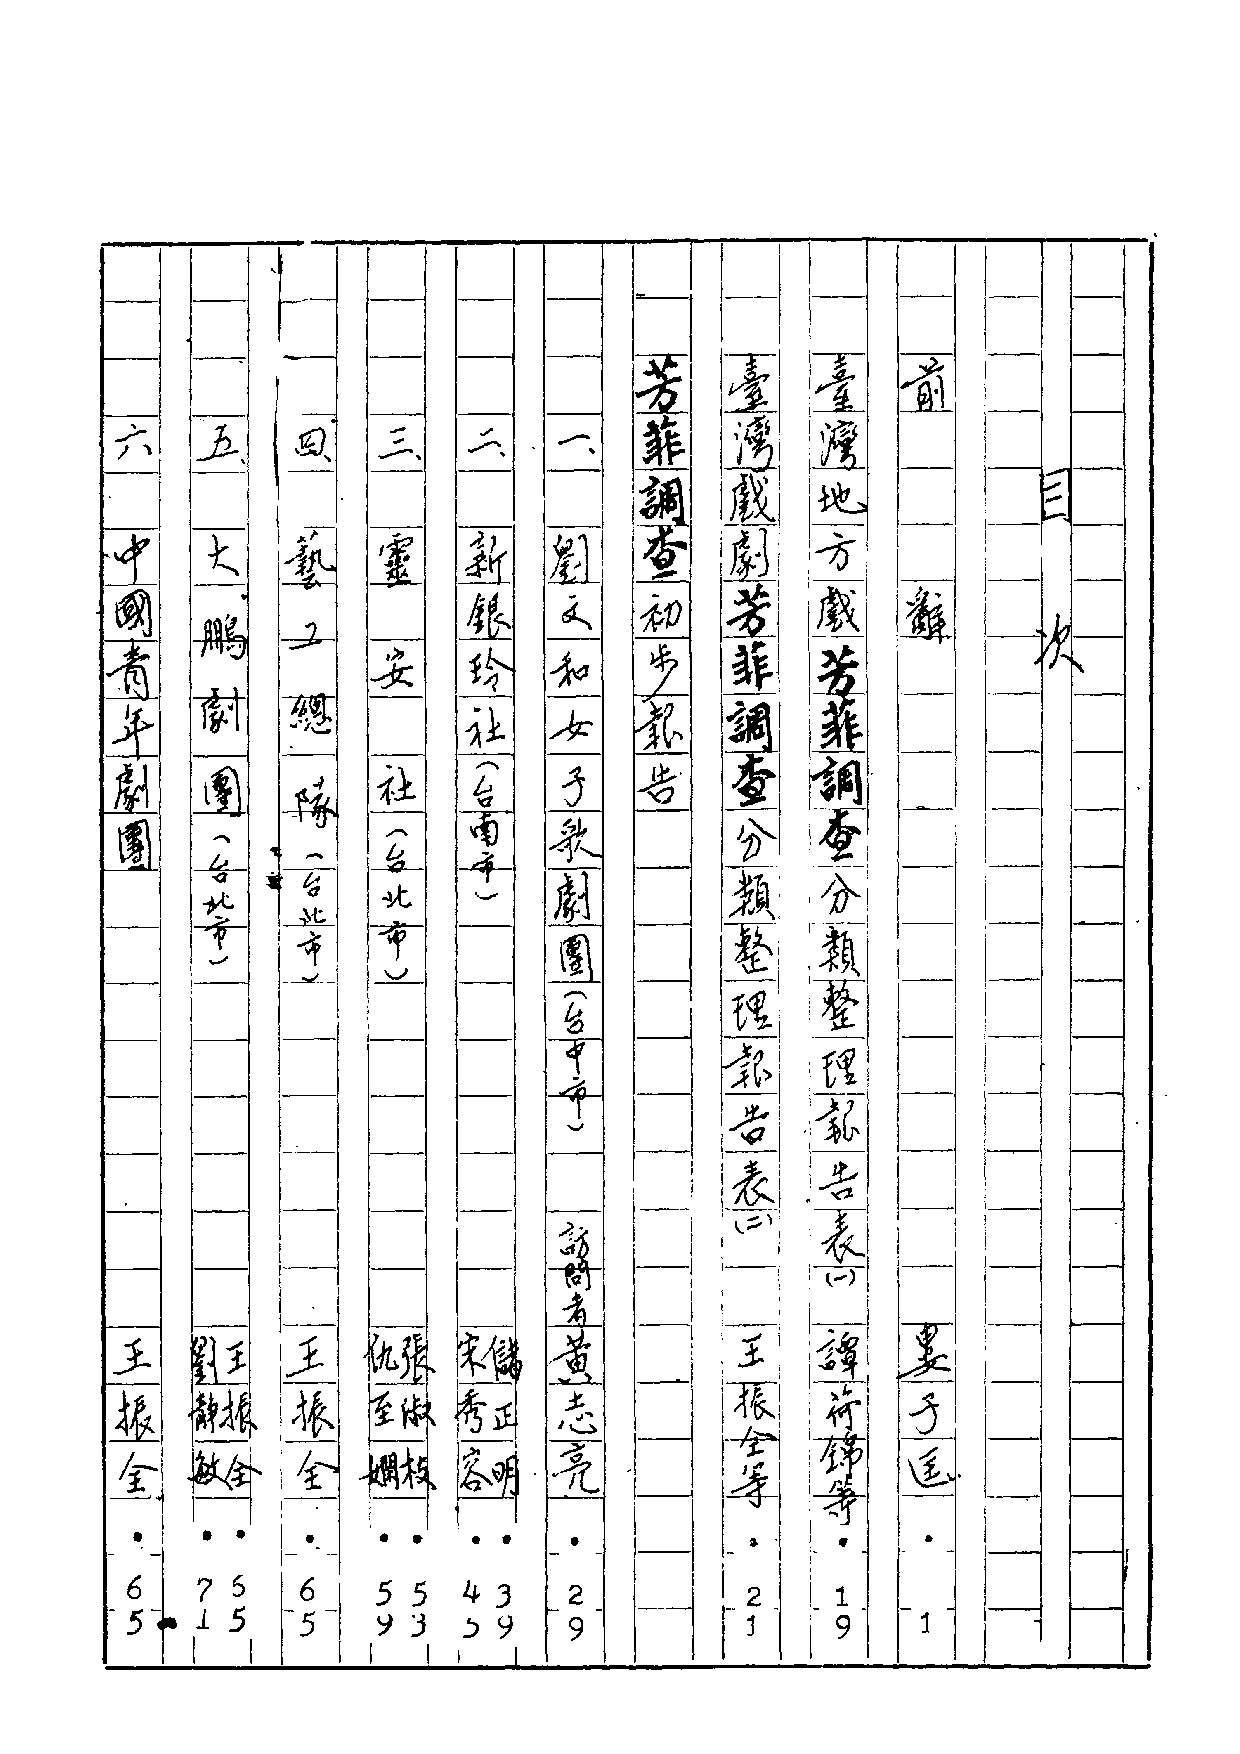 目次
前辭 婁子匡 • 1
臺灣地方戲芳菲調查分類整理報告表(一) 譚荷錦等 • 19
臺灣戲劇芳菲調查分類整理報告表(二) 王振全等 • 21
芳菲調查初步報告
一、劉文和女子歌劇團(台中市) 訪問者黃志亮 • 29
二、新銀玲社(台南市) 儲正明 • 39
宋秀容 • 45
三、靈安社(台北市) 張淑枝 • 53
仇至嫻 • 59
四、藝工總隊(台北市) 王振全 • 65
五、大鵬劇團(台北市) 王振全 • 65
劉靜敏 • 71
六 中國青年劇團 王振全 • 65